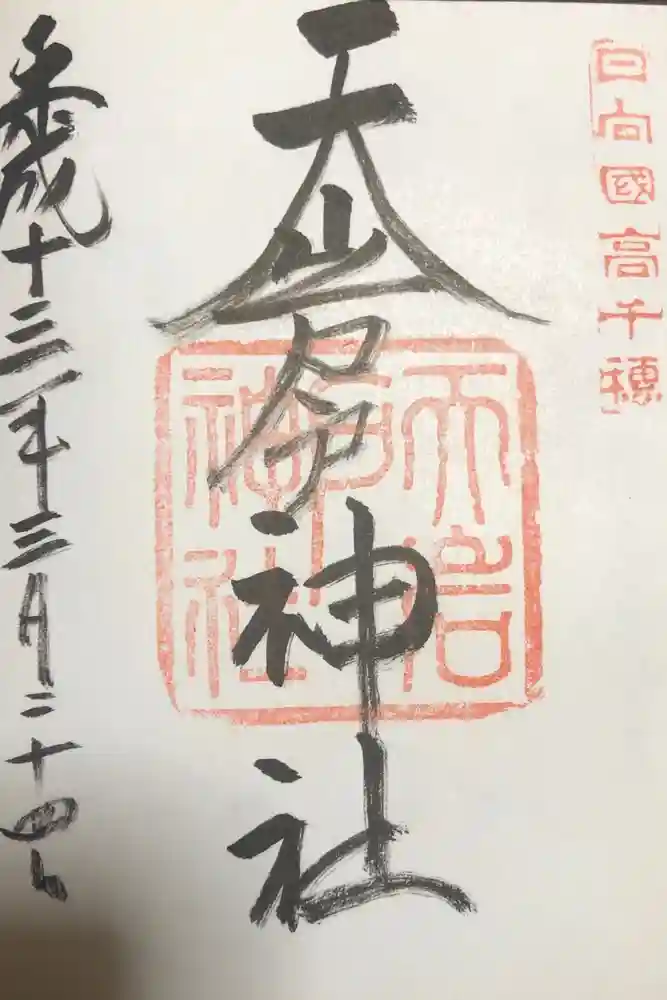 日向國高千穗
天岩戸神社
天岩戸神社
平成十三年三月二十四日